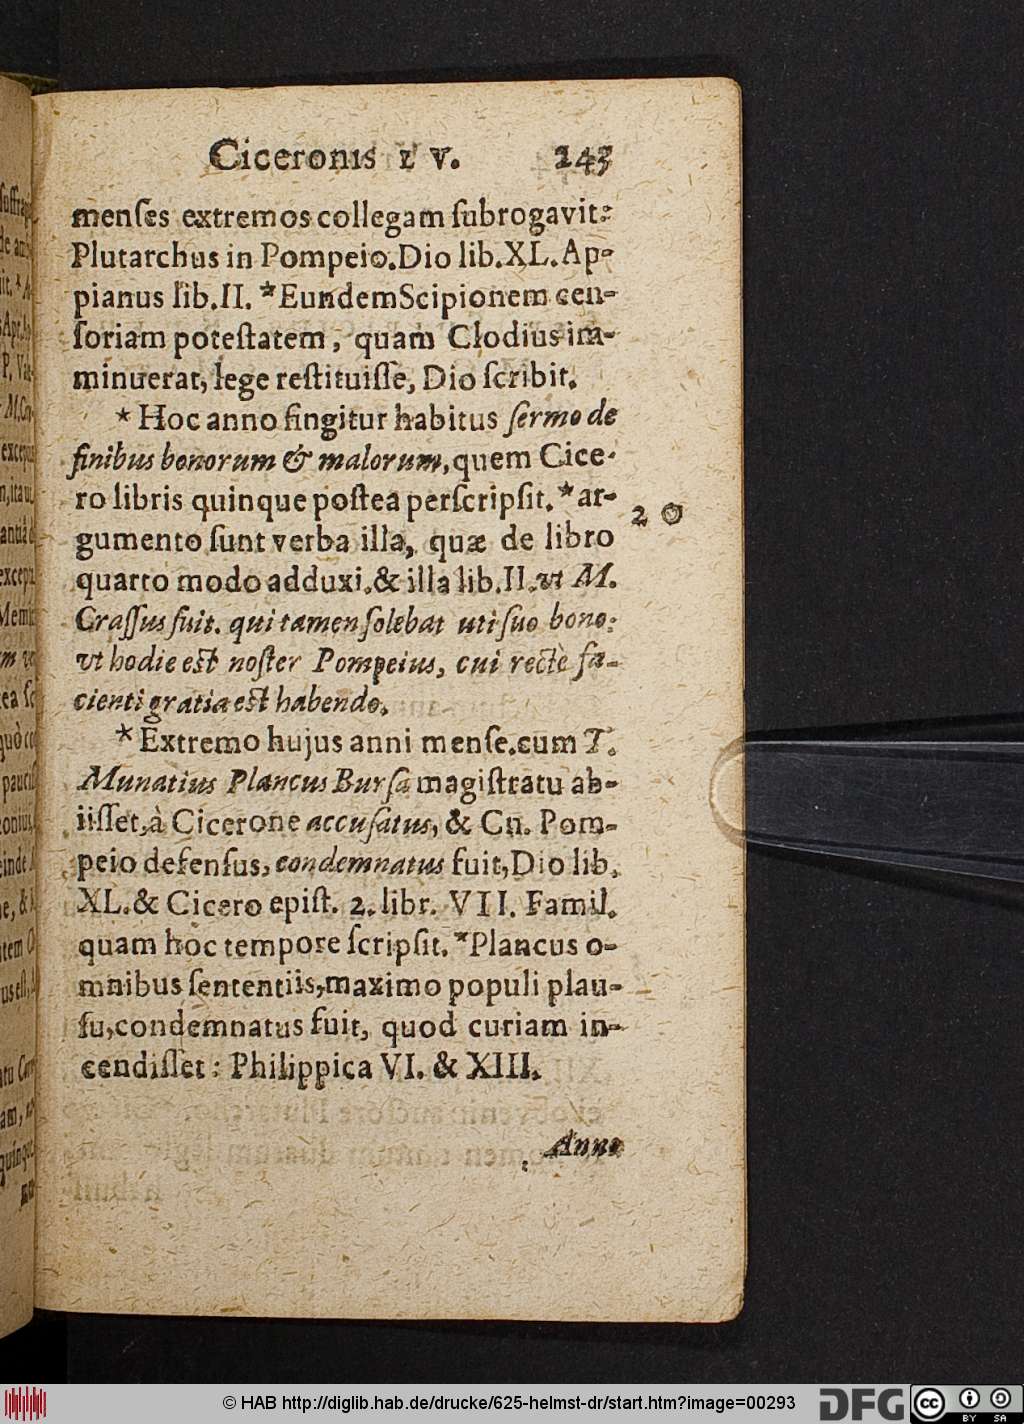 Ciceronis L V. 243
menſes extremos collegam ſubrogavit:
Plutarchus in Pompeio. Dio lib. XL. Ap-
pianus lib. II. * Eundem Scipionem cen-
ſoriam poteſtatem, quam Clodius im-
minuerat, lege reſtituiſſe, Dio ſcribit.
* Hoc anno fingitur habitus ſermo de
finibus bonorum & malorum, quem Cice-
ro libris quinque poſtea perſcripſit. * ar-
gumento ſunt verba illa, quæ de libro
20
quarto modo adduxi. & illa lib. II. vt M.
Craſſus fuit. qui tamen ſolebat uti ſuo bono:
vt hodie eſt noſter Pompeius, cui rectè fa-
cienti gratia eſt habendo.
* Extremo hujus anni menſe. cum T.
Munatius Plancus Burſa magiſtratu ab-
iiſſet, à Cicerone accuſatus, & Cn. Pom-
peio defenſus, condemnatus fuit, Dio lib.
XL. & Cicero epiſt. 2. libr. VII. Famil.
quam hoc tempore ſcripſit. * Plancus o-
mnibus ſententiis, maximo populi plau-
ſu, condemnatus fuit, quod curiam in-
cendiſſet: Philippica VI. & XIII.
Anno
© HAB http://diglib.hab.de/drucke/625-helmst-dr/start.htm?image=00293
DFG
cc BY SA